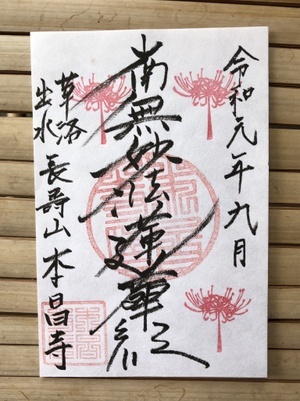 令和元年九月
南無妙法蓮華経
華洛
出水
長壽山 本昌寺